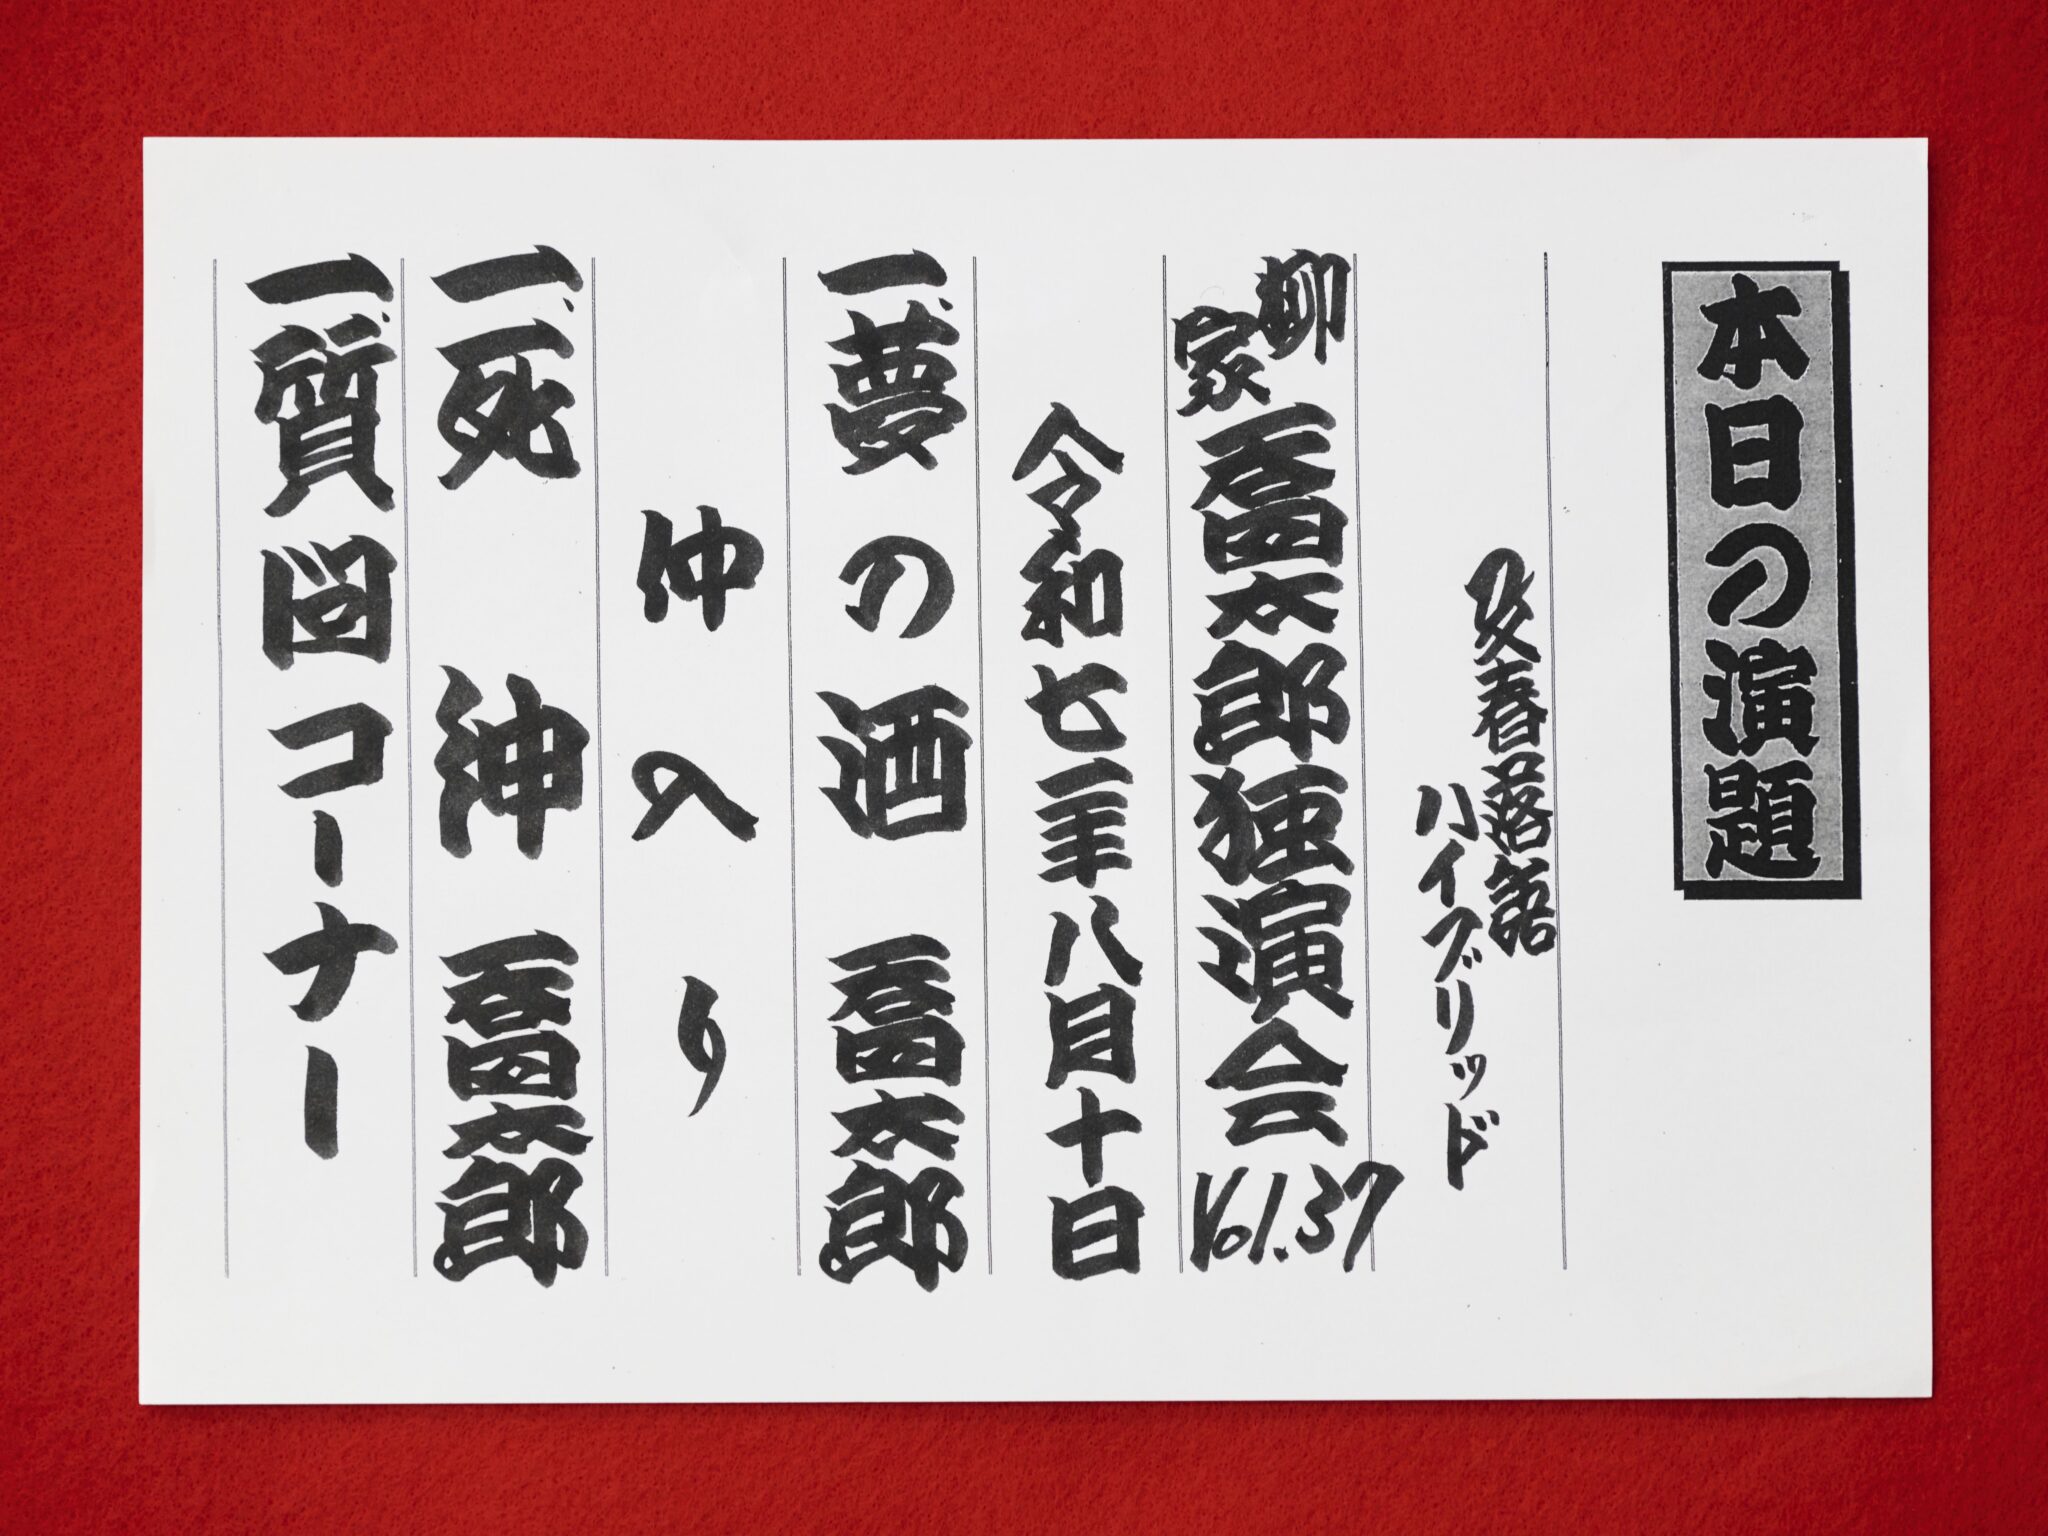 本日の演題
文春落語
ハイブリッド
柳家喬太郎独演会Vol.37
令和七年八月十日
一、夢の酒 喬太郎
仲入り
一、死神 喬太郎
一、質問コーナー